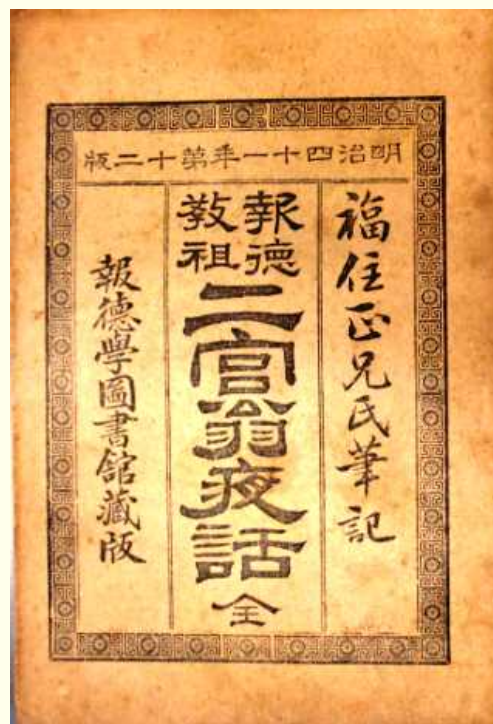 明治四十一年第十二版
福住正兄氏筆記
報德
教祖
二宮翁夜話 全
報德學圖書館藏版